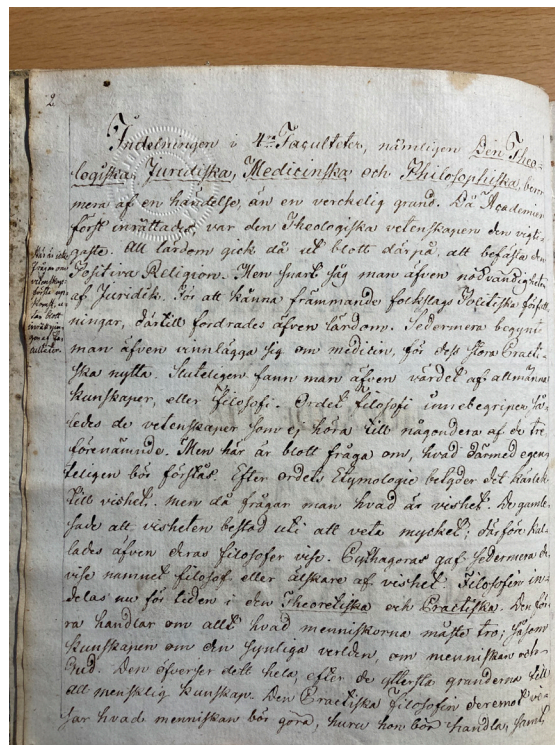 2
Indelningen i 4ra Faculteter, nämligen Den Theo-
logiska, Juridiska, Medicinska och Philosophiska, kom̄
mera af en händelse, än en verckelig grund. Då Academien
först inrättades, var den Theologiska vetenskapen den vigti-
gaste. All lärdom gick då ut blott därpå, att befästa den
Positiva Religion. Men snart såg man äfven nödvändigheten
af Juridik. För att känna främmande folckslags Politiska författ
ningar, därtill fordrades äfven lärdom. Sedermera begynte
man äfven vinnlägga sig om medicin, för dess stora Practi-
ska nytta. Sluteligen fann man äfven värdet af allmänna
kunskaper, eller Filosofi. Ordet filosofi innebegriper, så
ledes de vetenskaper som ej höra till någondera af de tre
förenämnde. Men här är blott fråga om, hvad därmed egen
teligen bör förstås. Efter ordets Etymologie betyder det kärlek
till vishet. men då frågar man hvad är vishet. De gamle
sade att visheten bestod uti att veta mycket; därför kal
lades äfven deras filosofer vise. Pythagoras gaf sedermera de
vise namnet filosof eller älskare af vishet. Filosofin in-
delas nu för tiden i den Theoretiska och Practiska. Den för
ra handlar om allt hvad menniskorna måste tro; såsom
kunskapen om den synliga verlden, om menniskan och
Gud. Den öfverser dett hela, efter de yttersta grunderna till
all mensklig kunskap. Den Practiska filosofin deremot vi
sar hvad menniskan bör göra, huru hon bör handla, samt
Här är icke
frågan om